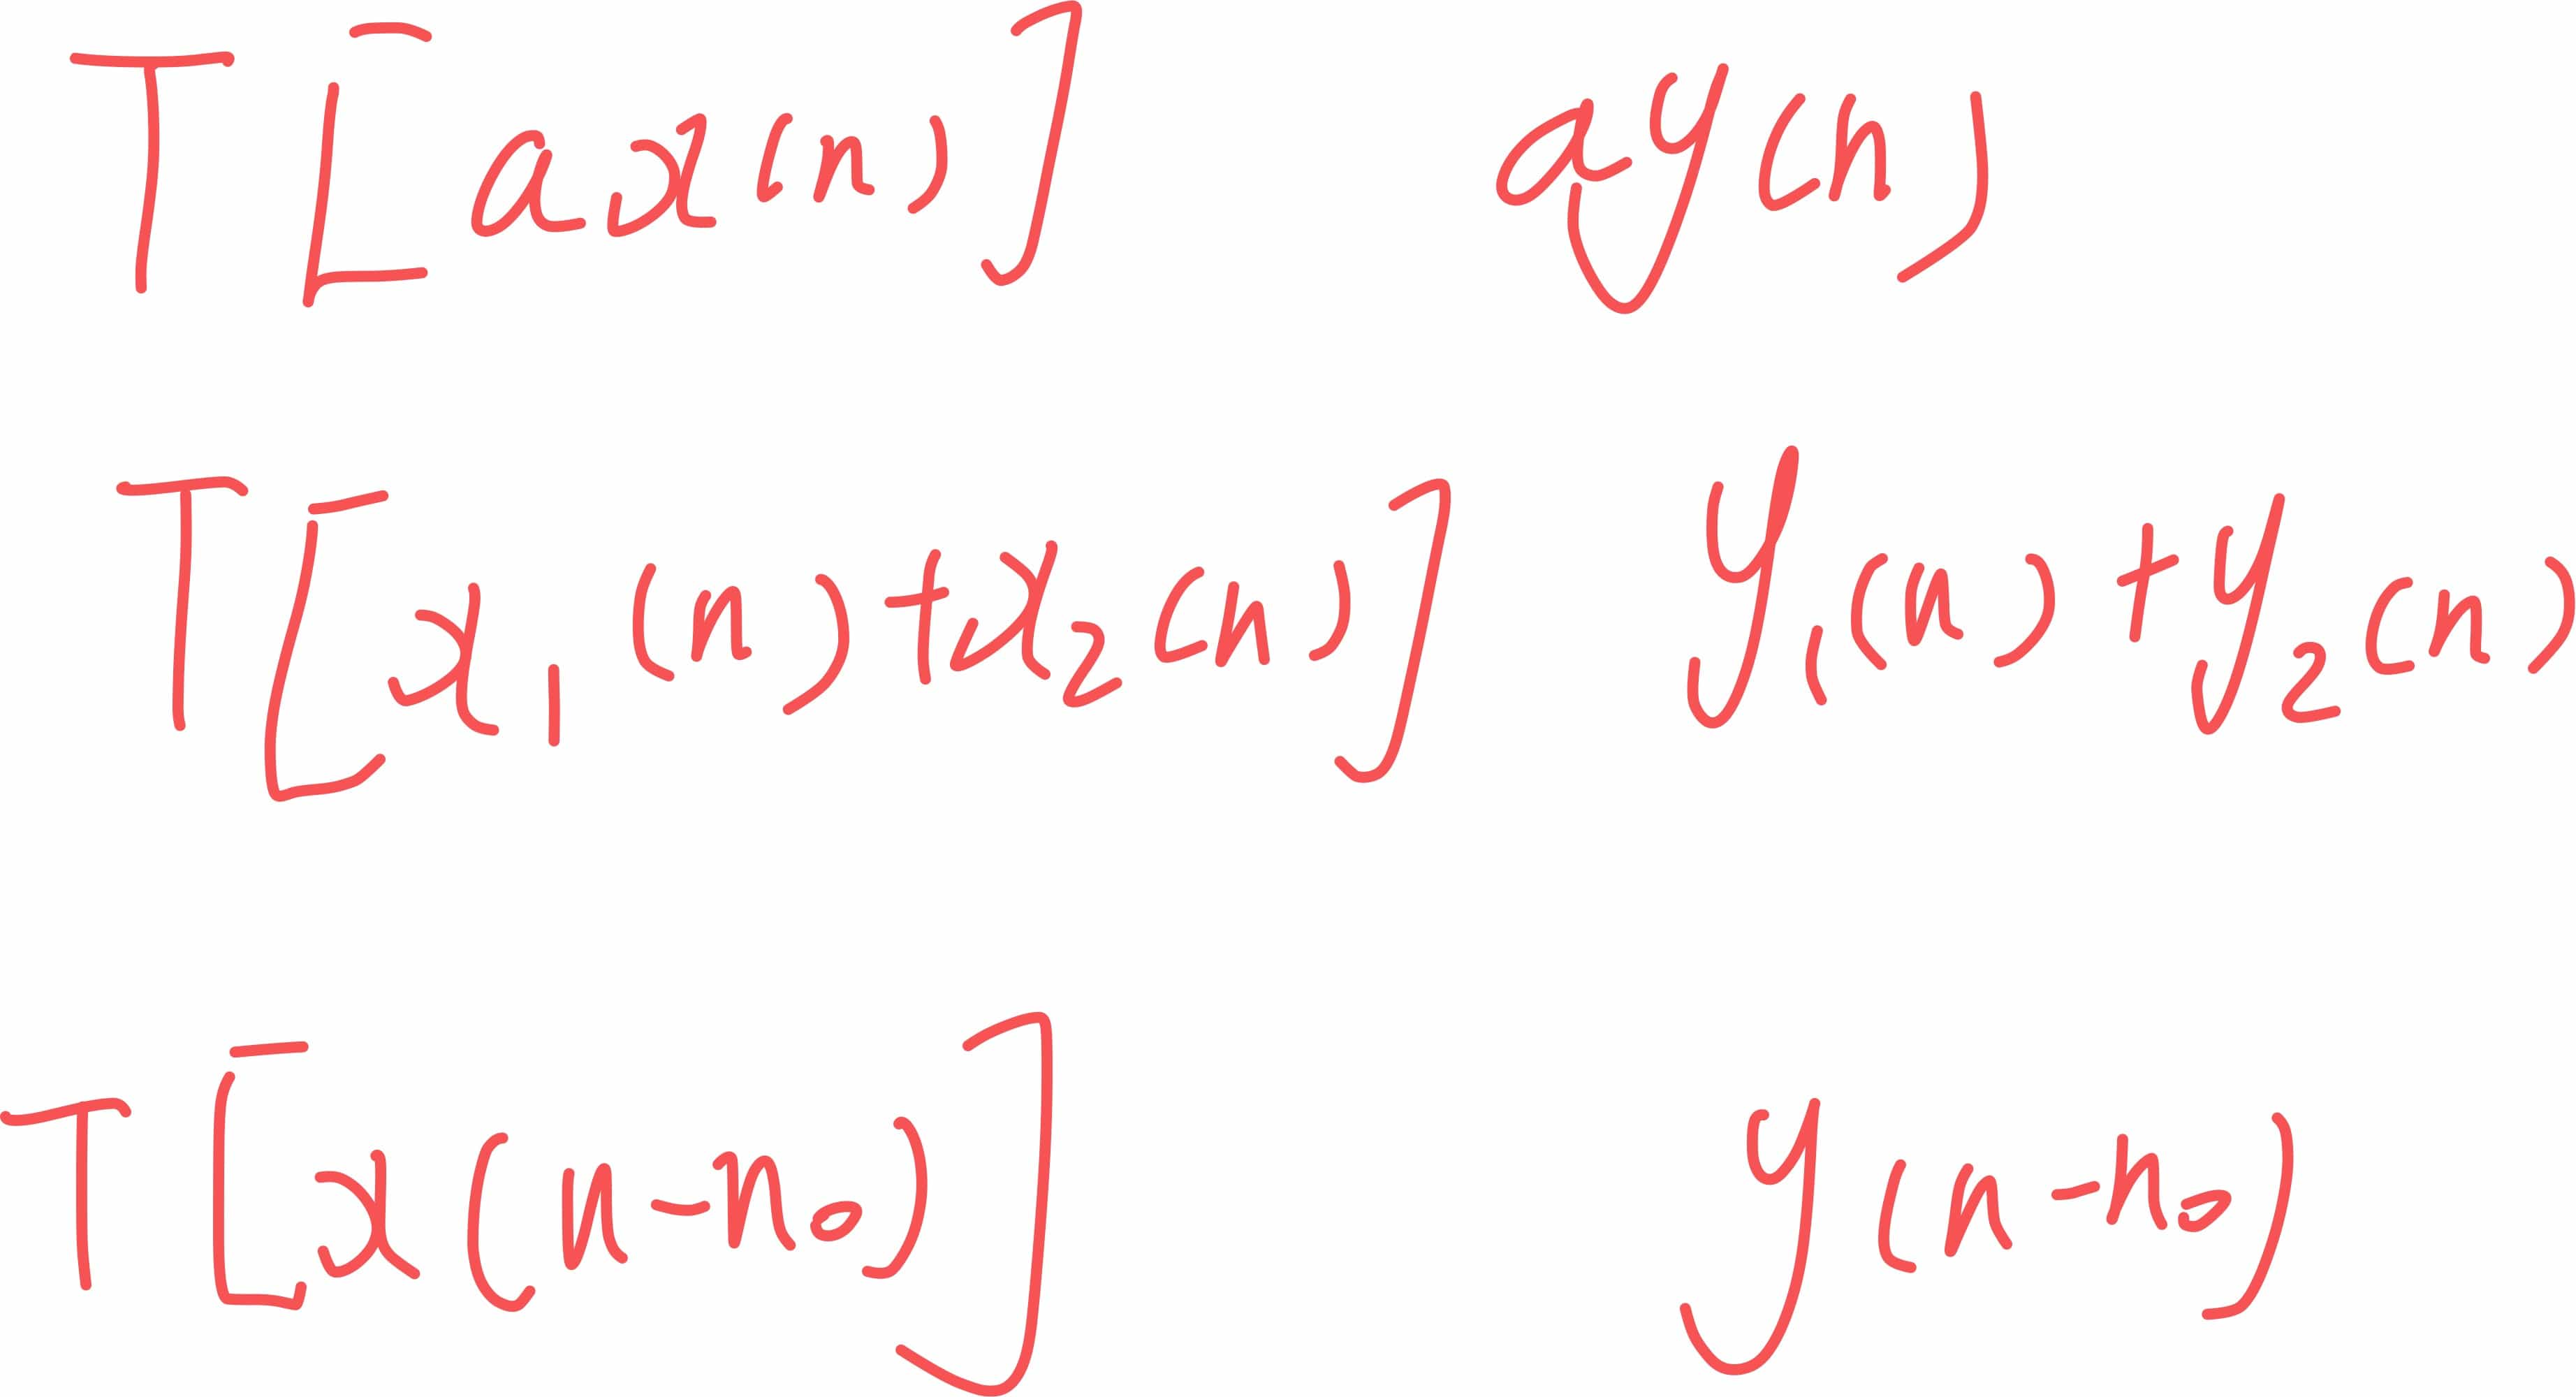 T[ax(n)] ay(n)
T[x₁(n)+x₂(n)] y₁(n)+y₂(n)
T[x(n-n₀)] y(n-n₀)